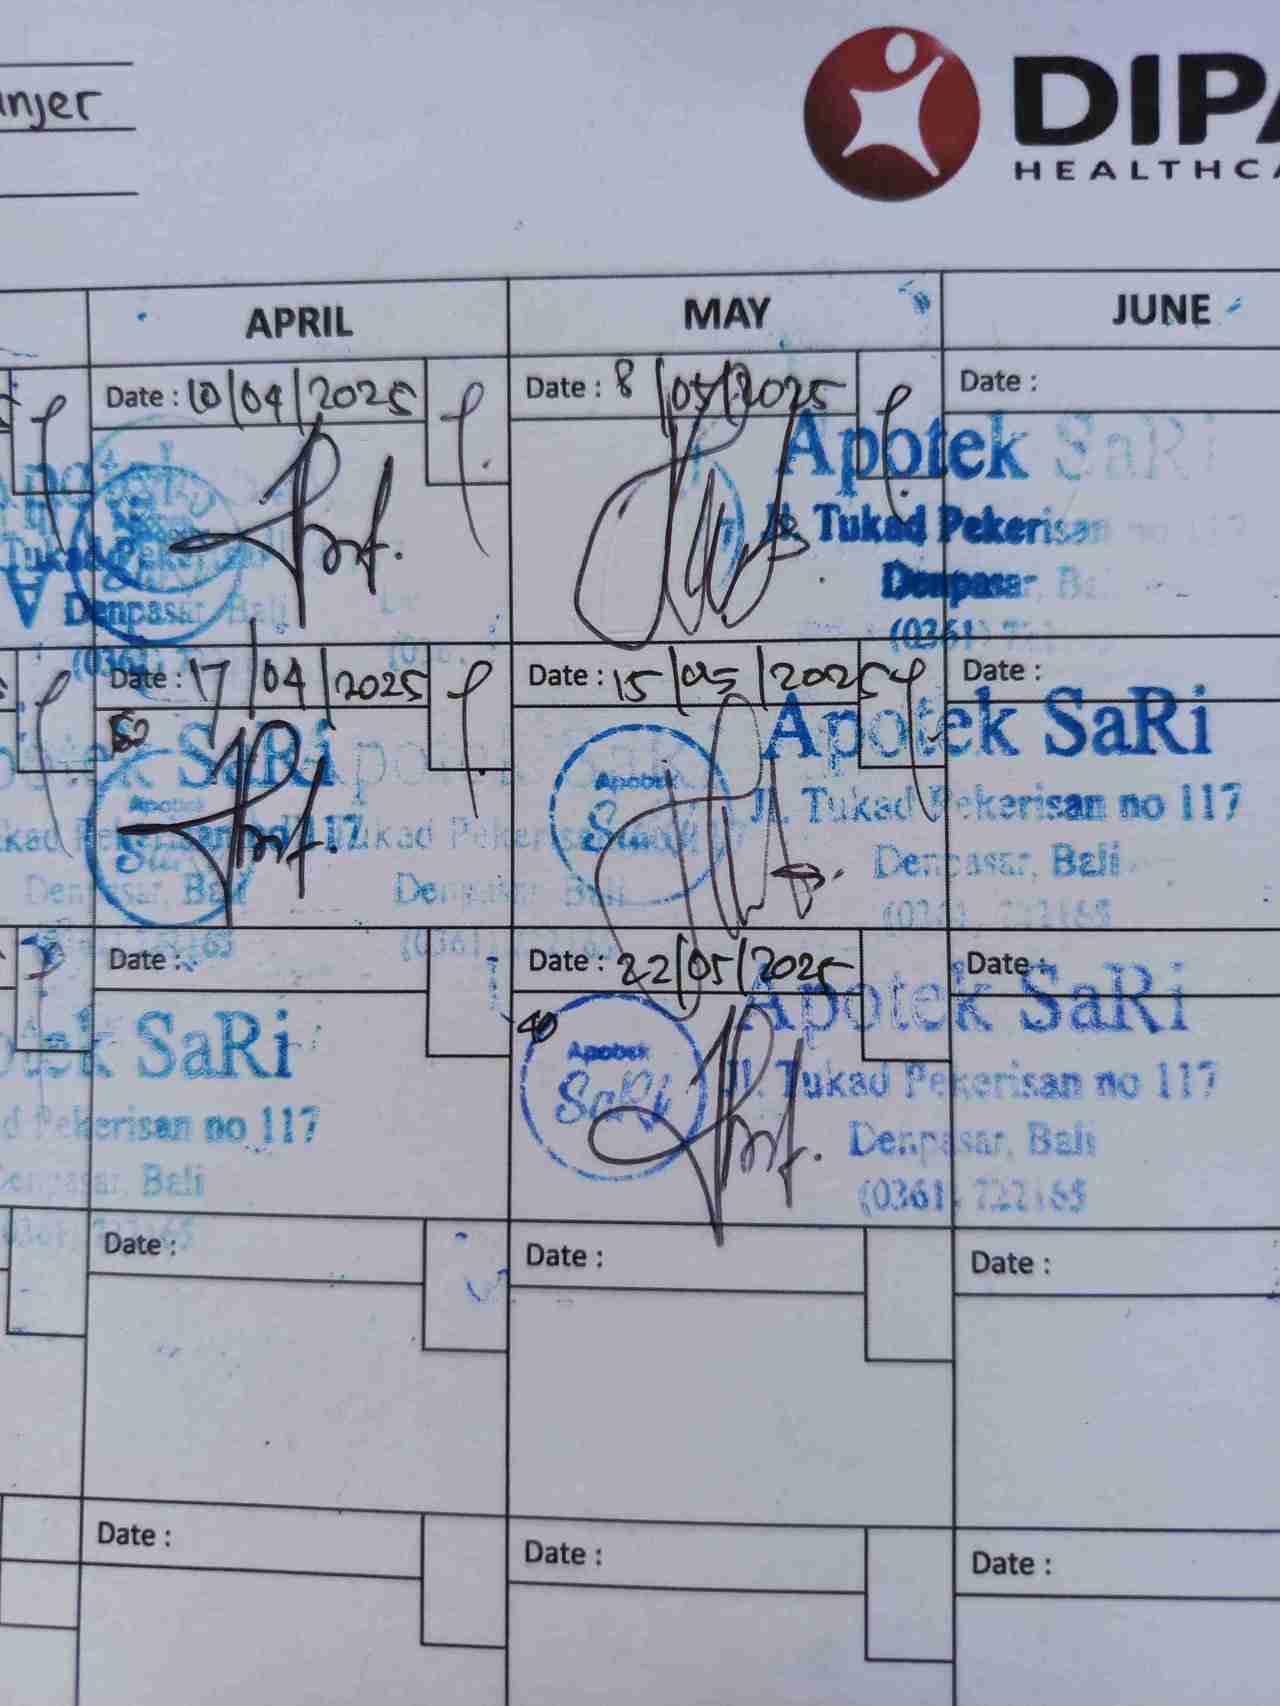 njer
DIPA
HEALTHCA
APRIL
MAY
JUNE
Date : 10/04/2025
Date : 8/05/2025
Date :
Apotek SaRi
Jl. Tukad Pekerisan no 117
Denpasar, Bali
(0361)
Tukad Pekerisan
Denpasar, Bali
Date : 17/04/2025
Date : 15/05/2025
Date :
SaRi
Apotek
Apotek
Apotek SaRi
Jl. Tukad Pekerisan no 117
Denpasar, Bali
Denpasar, Bali
Denpasar, Bali
Date :
Date : 22/05/2025
Date :
40
Apotek
SaRi
Apotek SaRi
Jl. Tukad Pekerisan no 117
Denpasar, Bali
(0361) 722165
SaRi
Pekerisan no 117
Denpasar, Bali
Date :
Date :
Date :
Date :
Date :
Date :